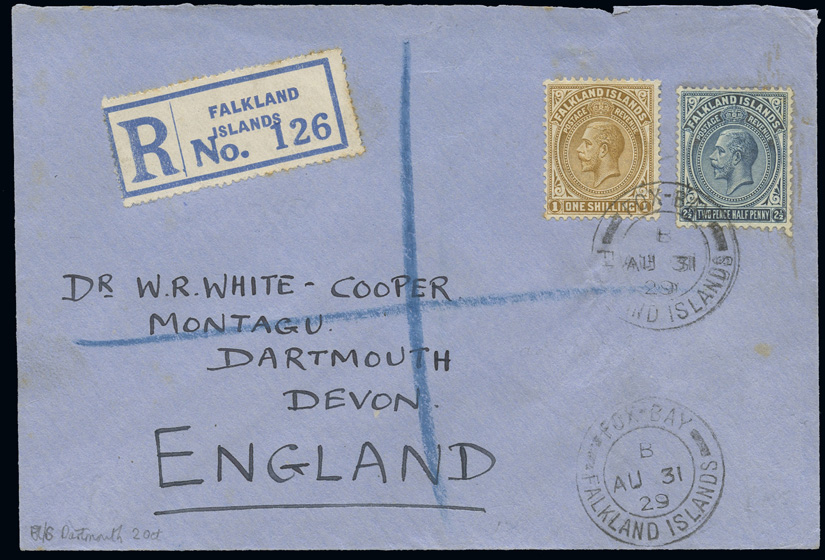 R
FALKLAND
ISLANDS
No. 126
FALKLAND ISLANDS
POSTAGE REVENUE
1 ONE SHILLING 1
FALKLAND ISLANDS
POSTAGE REVENUE
2½ TWO PENCE HALF PENNY 2½
FOX-BAY
B
AU 31
29
FALKLAND ISLANDS
DR W.R. WHITE - COOPER
MONTAGU.
DARTMOUTH
DEVON.
ENGLAND
FOX-BAY
B
AU 31
29
FALKLAND ISLANDS
Dartmouth 2 Oct